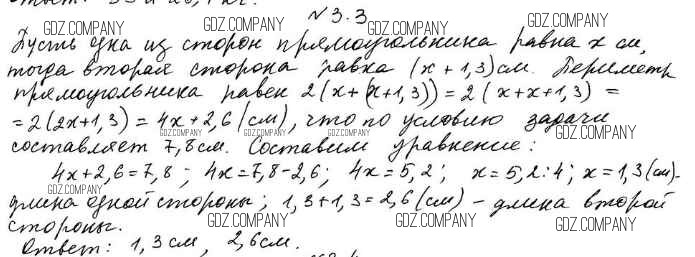 №3.3
Пусть одна из сторон прямоугольника равна x см,
тогда вторая сторона равна (x+1,3)см. Периметр
прямоугольника равен 2(x+(x+1,3))=2(x+x+1,3)=
=2(2x+1,3)=4x+2,6(см), что по условию задачи
составляет 7,8см. Составим уравнение:
4x+2,6=7,8; 4x=7,8-2,6; 4x=5,2; x=5,2:4; x=1,3(см)-
длина одной стороны; 1,3+1,3=2,6(см) - длина второй
стороны.
Ответ: 1,3см, 2,6см.
GDZ.COMPANY